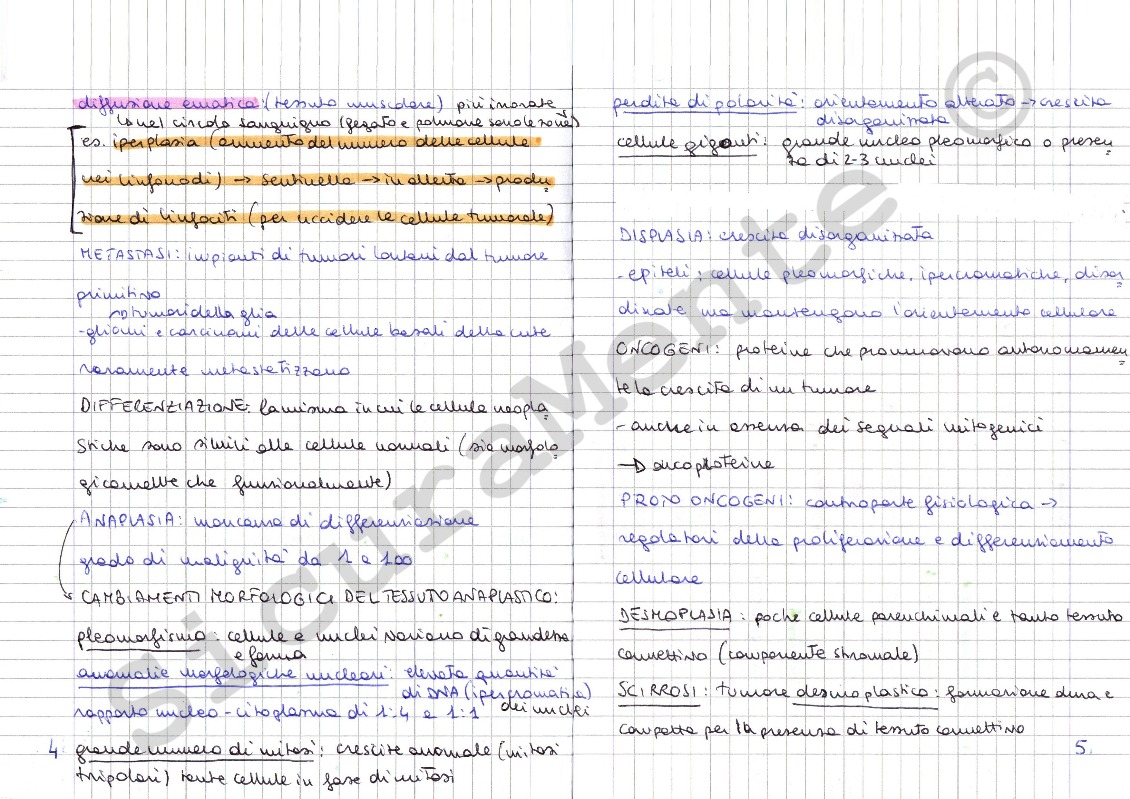 diffusione ematica: (tessuto muscolare) più invasate
↳ nel circolo sanguigno (fegato e polmone sono le sovè)
es. iperplasia (aumento del numero delle cellule
nei linfonodi) → sentinella → in allerta → produ
zione di linfociti (per uccidere le cellule tumorale)
METASTASI: impianti di tumori lontani dal tumore
primitivo
→ tumori della glia
-gliomi e carcinomi delle cellule basali della cute
raramente metastatizzano
DIFFERENZIAZIONE: la misura in cui le cellule neopla
stiche sono simili alle cellule normali (sia morfolo
gicamente che funzionalmente)
ANAPLASIA: mancanza di differenziazione
grado di malignità da 1 a 100
CAMBIAMENTI MORFOLOGICI DEL TESSUTO ANAPLASTICO:
pleomorfismo: cellule e nuclei variano di grandezza
e forma
anomalie morfologiche nucleari: elevata quantità
di DNA (ipercromatica)
rapporto nucleo-citoplasma di 1:4 a 1:1 dei nuclei
4 grande numero di mitosi: crescite anomale (mitosi
tripolari) tante cellule in fase di mitosi
perdita di polarità: orientamento alterato → crescita
disorganizzata
cellule giganti: grande nucleo pleomorfico o presen
za di 2-3 nuclei
DISPLASIA: crescita disorganizzata
-epiteli; cellule pleomorfiche, ipercromatiche, disor
dinate ma mantengono l'orientamento cellulare
ONCOGENI: proteine che promuovono autonomamen
te la crescita di un tumore
-anche in assenza dei segnali mitogenici
→ oncoproteine
PROTO ONCOGENI: controparte fisiologica →
regolatori della proliferazione e differenziamento
cellulare
DESMOPLASIA: poche cellule parenchimali e tanto tessuto
connettivo (componente stromale)
SCIRROSI: tumore desmoplastico: formazione dura e
compatta per la presenza di tessuto connettivo
5
SicuraMente ©